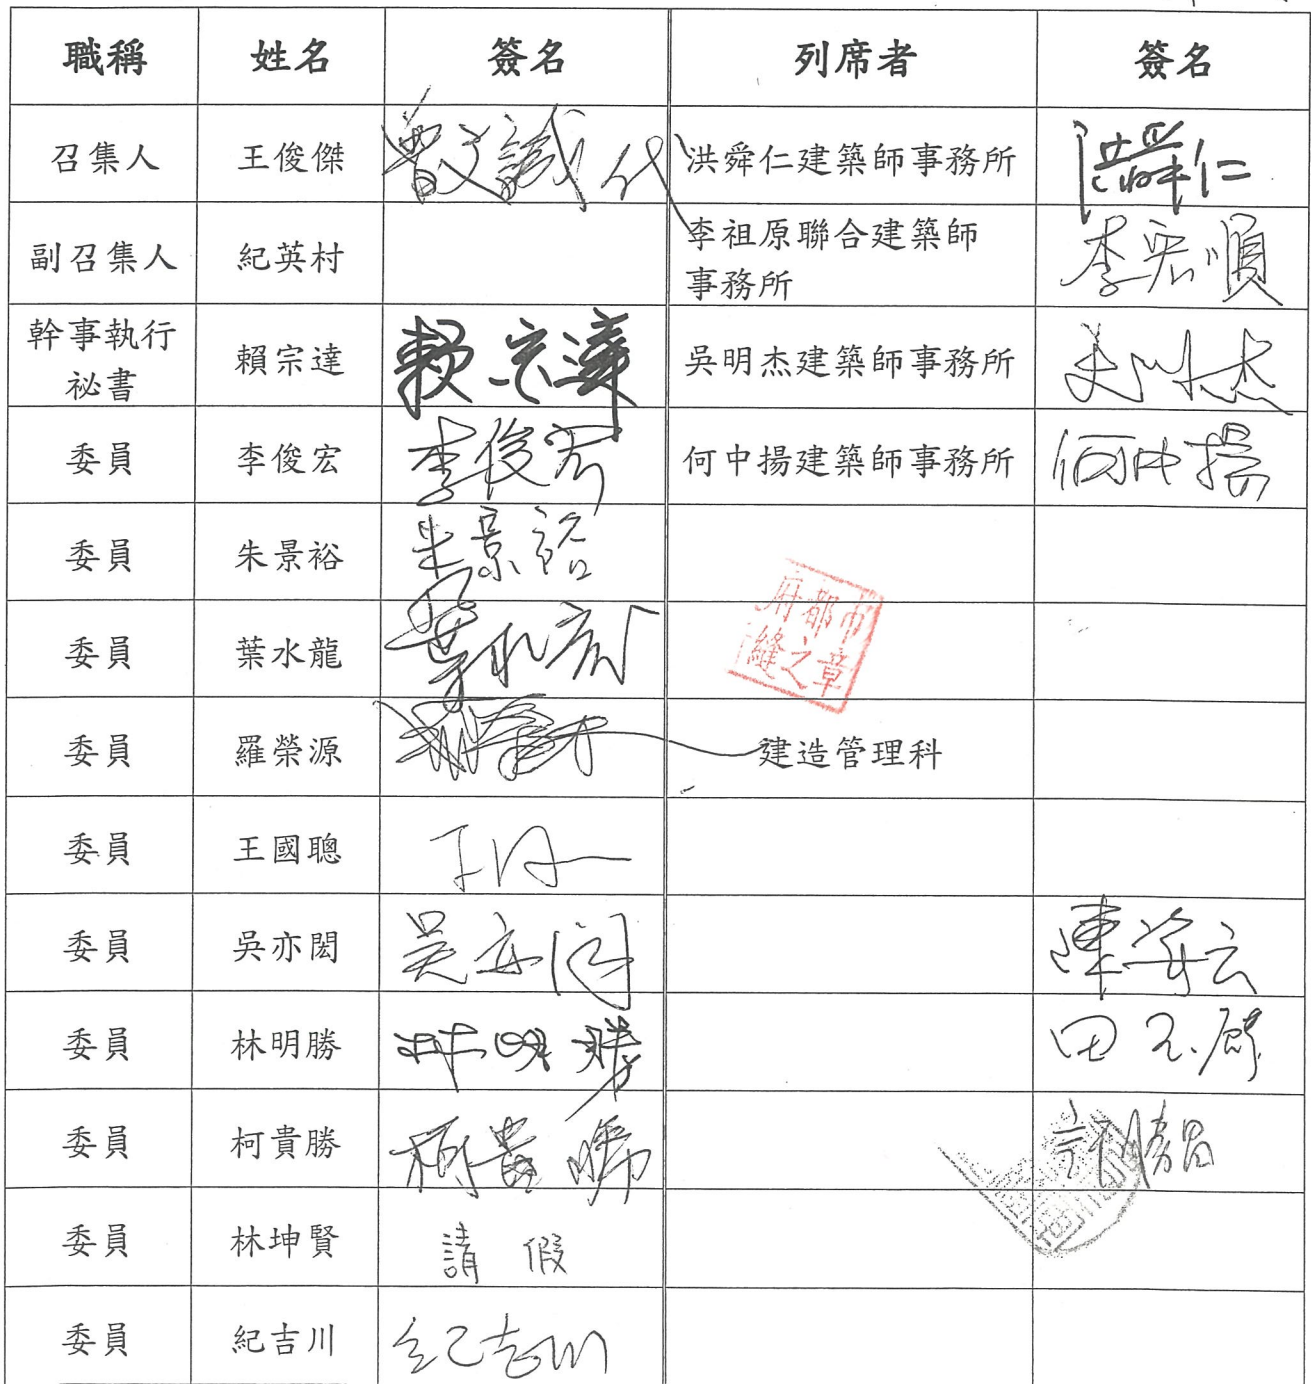 職稱 姓名 簽名 列席者 簽名
召集人 王俊傑 曾文誠 代 洪舜仁建築師事務所 洪舜仁
副召集人 紀英村 李祖原聯合建築師 李宏順
事務所
幹事執行 賴宗達 賴宗達 吳明杰建築師事務所 吳明杰
祕書
委員 李俊宏 李俊宏 何中揚建築師事務所 何中揚
委員 朱景裕 朱景裕
委員 葉水龍 葉水龍
府都市
縫之章
委員 羅榮源 建造管理科
委員 王國聰
委員 吳亦閎 吳亦閎
委員 林明勝 林明勝
委員 柯貴勝 柯貴勝
委員 林坤賢 請假
委員 紀吉川 紀吉川